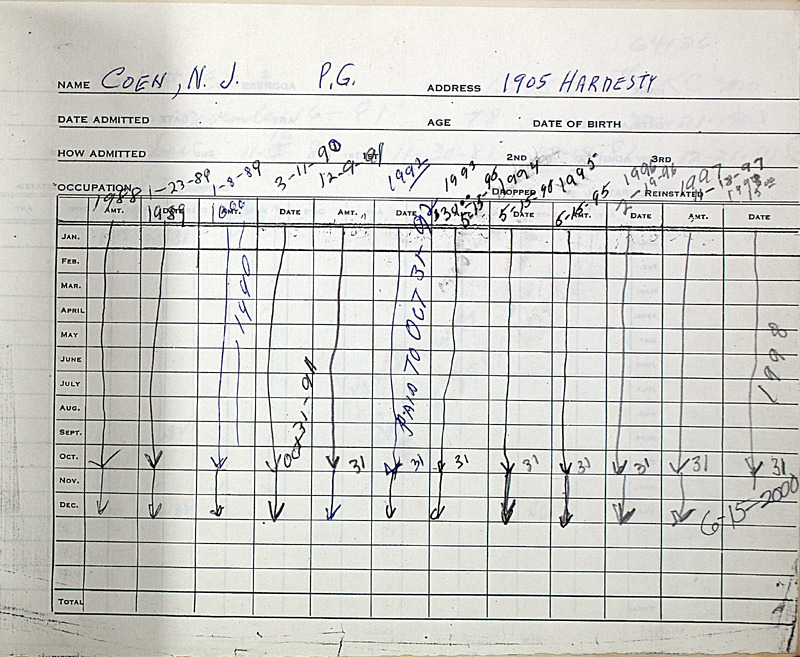 NAME COEN, N. J. P.G. ADDRESS 1905 HARDESTY
DATE ADMITTED AGE DATE OF BIRTH
HOW ADMITTED 1ST 2ND 3RD
3-11-90 12-9-91 1992 1993 1994 1995 1996 1997
OCCUPATION DROPPED REINSTATED
1988 1-23-89 1-8-89 5-15-96 6-15-95
1989
AMT. DATE AMT. DATE AMT. DATE DATE AMT. DATE AMT. DATE
JAN.
FEB.
MAR.
APRIL
MAY
JUNE
JULY
AUG.
SEPT.
OCT. 31 31 31 31 31 31 31 31
NOV.
DEC.
TOTAL
1990
OCT-31-91
PAID TO OCT 31-92
1998
6-15-2000